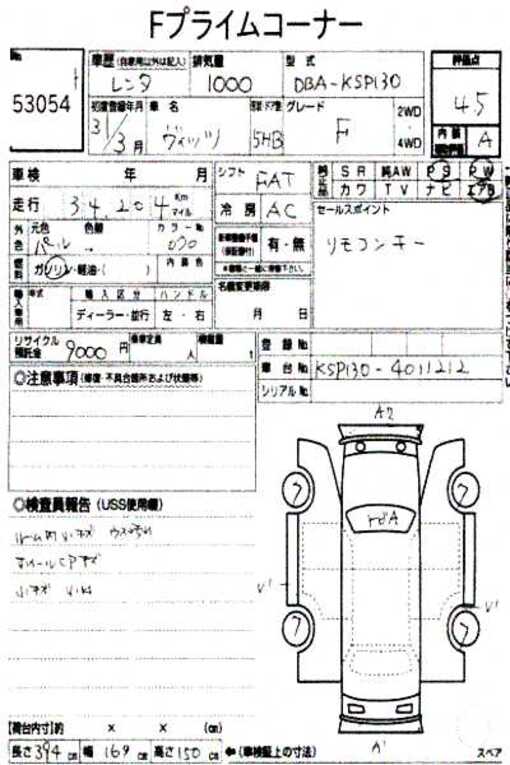 Fプライムコーナー
No
53054
車歴 (自家用以外は記入) 排気量 型式
レンタ 1000 DBA-KSP130
初度登録年月 車名 ドア形状 グレード
31/3月 ヴィッツ 5HB F
2WD
4WD
評価点
4.5
内装 A
車検 年 月
シフト FAT
純正品 SR 純AW PS PW
カワ TV ナビ エアB
走行 34,204 Km マイル
冷房 AC
セールスポイント
リモコンキー
外色 元色 色替 カラーNo
パール 070
有・無
燃料 ガソリン・軽油・( ) 内装色
名義変更期限
月 日
輸入車用 年式 輸入区分 ハンドル
ディーラー・並行 左・右
リサイクル預託金 9000円 乗車定員 人 積載量 t
登録No
車台No KSP130-4011212
シリアルNo
◎注意事項 (修復・不具合箇所および状態等)
◎検査員報告 (USS使用欄)
ルーム内
小キズ
A2
7
7
A
V1
7
7
V1
A1
【荷台内寸】約 × × (cm)
長さ394cm 幅169cm 高さ150cm ←(車検証上の寸法)
スペア